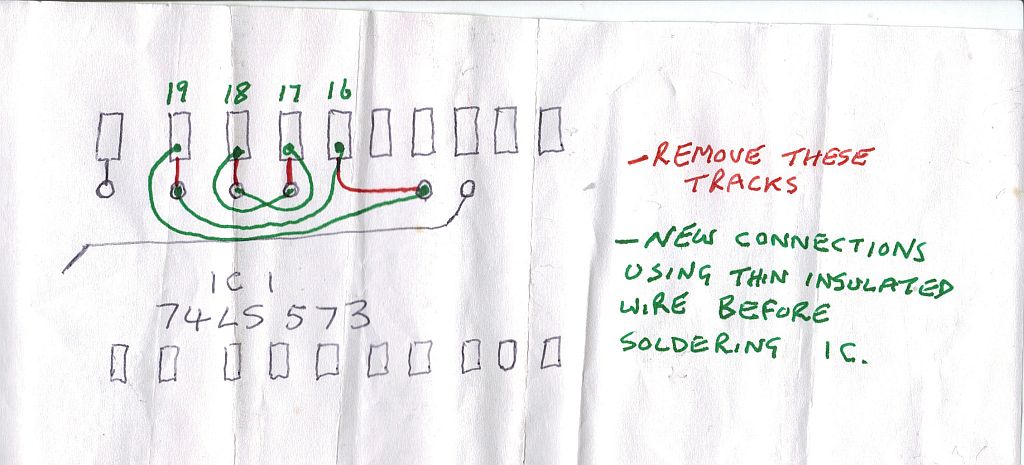 19 18 17 16
- REMOVE THESE
TRACKS
- NEW CONNECTIONS
USING THIN INSULATED
WIRE BEFORE
SOLDERING IC.
IC 1
74LS573